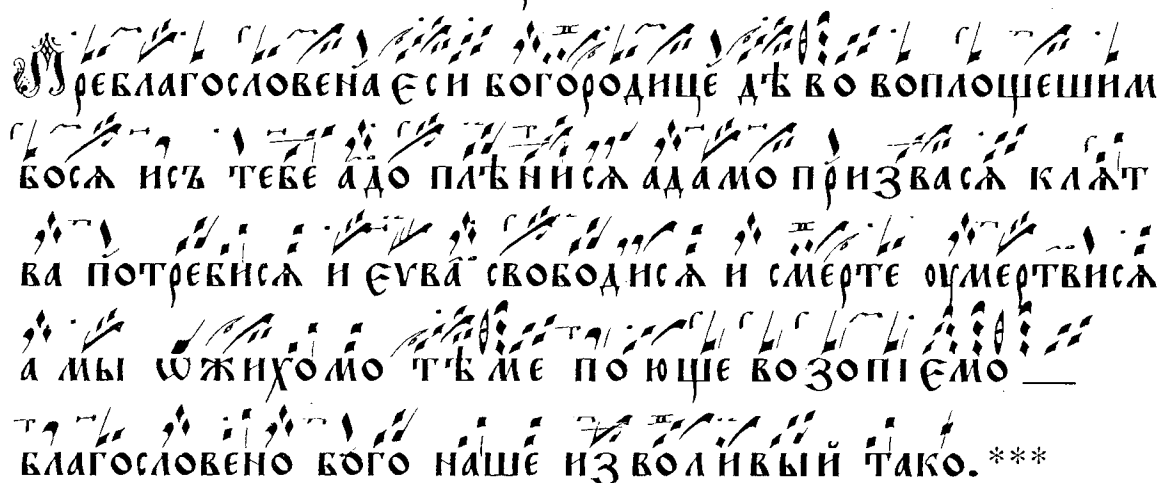 Преблагословена єси богородице дѣво воплощешим
бося исъ тебе адо плѣнися адамо призвася клят
ва потребися и єѵва свободися и смерте оумертвися
а мы ѡжихомо тѣме поюще возопіємо
благословено бого наше изволивый тако. ***